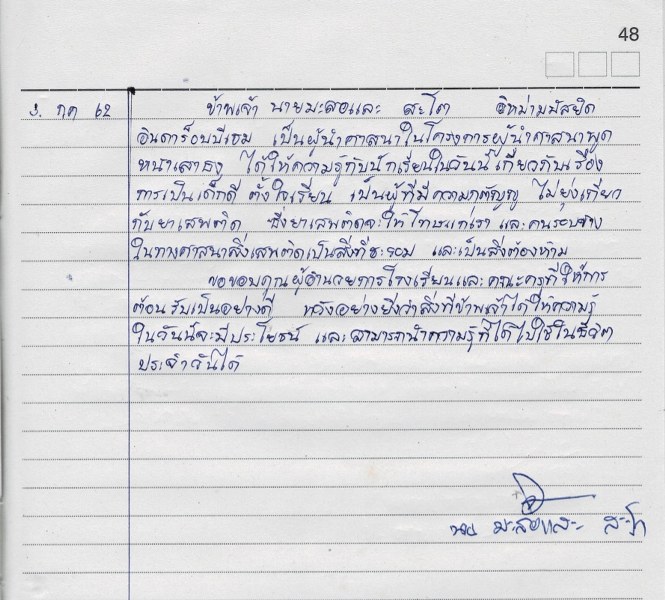 48
3. กค 62 ข้าพเจ้า นายมะสอและ สะโต อิหม่ามมัสยิด
อินดาร็อบบีเซม เป็นผู้นำศาสนาในโครงการผู้นำศาสนาพูด
หน้าเสาธง ได้ให้ความรู้กับนักเรียนในวันนี้เกี่ยวกับเรื่อง
การเป็นเด็กดี ตั้งใจเรียน เป็นผู้ที่มีความกตัญญู ไม่ยุ่งเกี่ยว
กับยาเสพติด ซึ่งยาเสพติดจะให้โทษแก่เรา และคนรอบข้าง
ในทางศาสนาสิ่งเสพติดเป็นสิ่งที่ฮะรอม และเป็นสิ่งต้องห้าม
ขอขอบคุณผู้อำนวยการโรงเรียนและคณะครูที่ให้การ
ต้อนรับเป็นอย่างดี หวังอย่างยิ่งว่าสิ่งที่ข้าพเจ้าได้ให้ความรู้
ในวันนี้จะมีประโยชน์ และสามารถนำความรู้ที่ได้ไปใช้ในชีวิต
ประจำวันได้
นาย มะสอและ สะโต